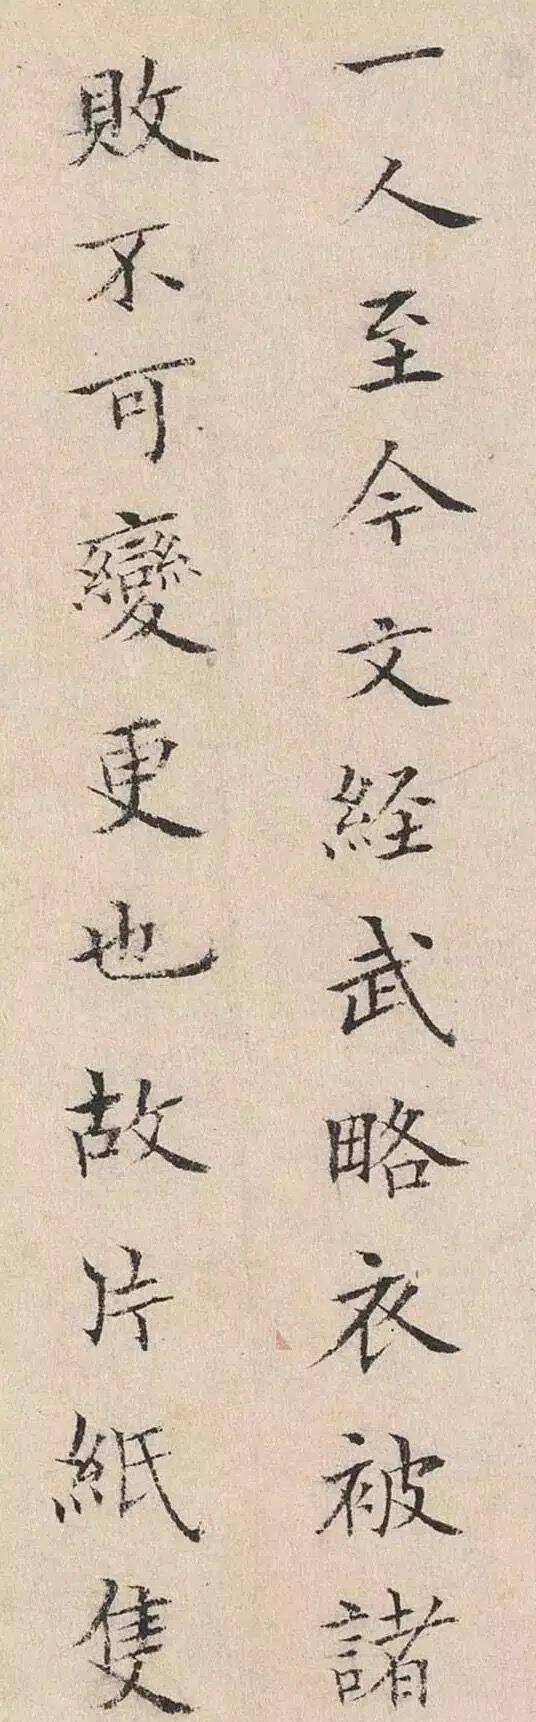 一人至今文経武略衣被諸
敗不可變更也故片紙隻